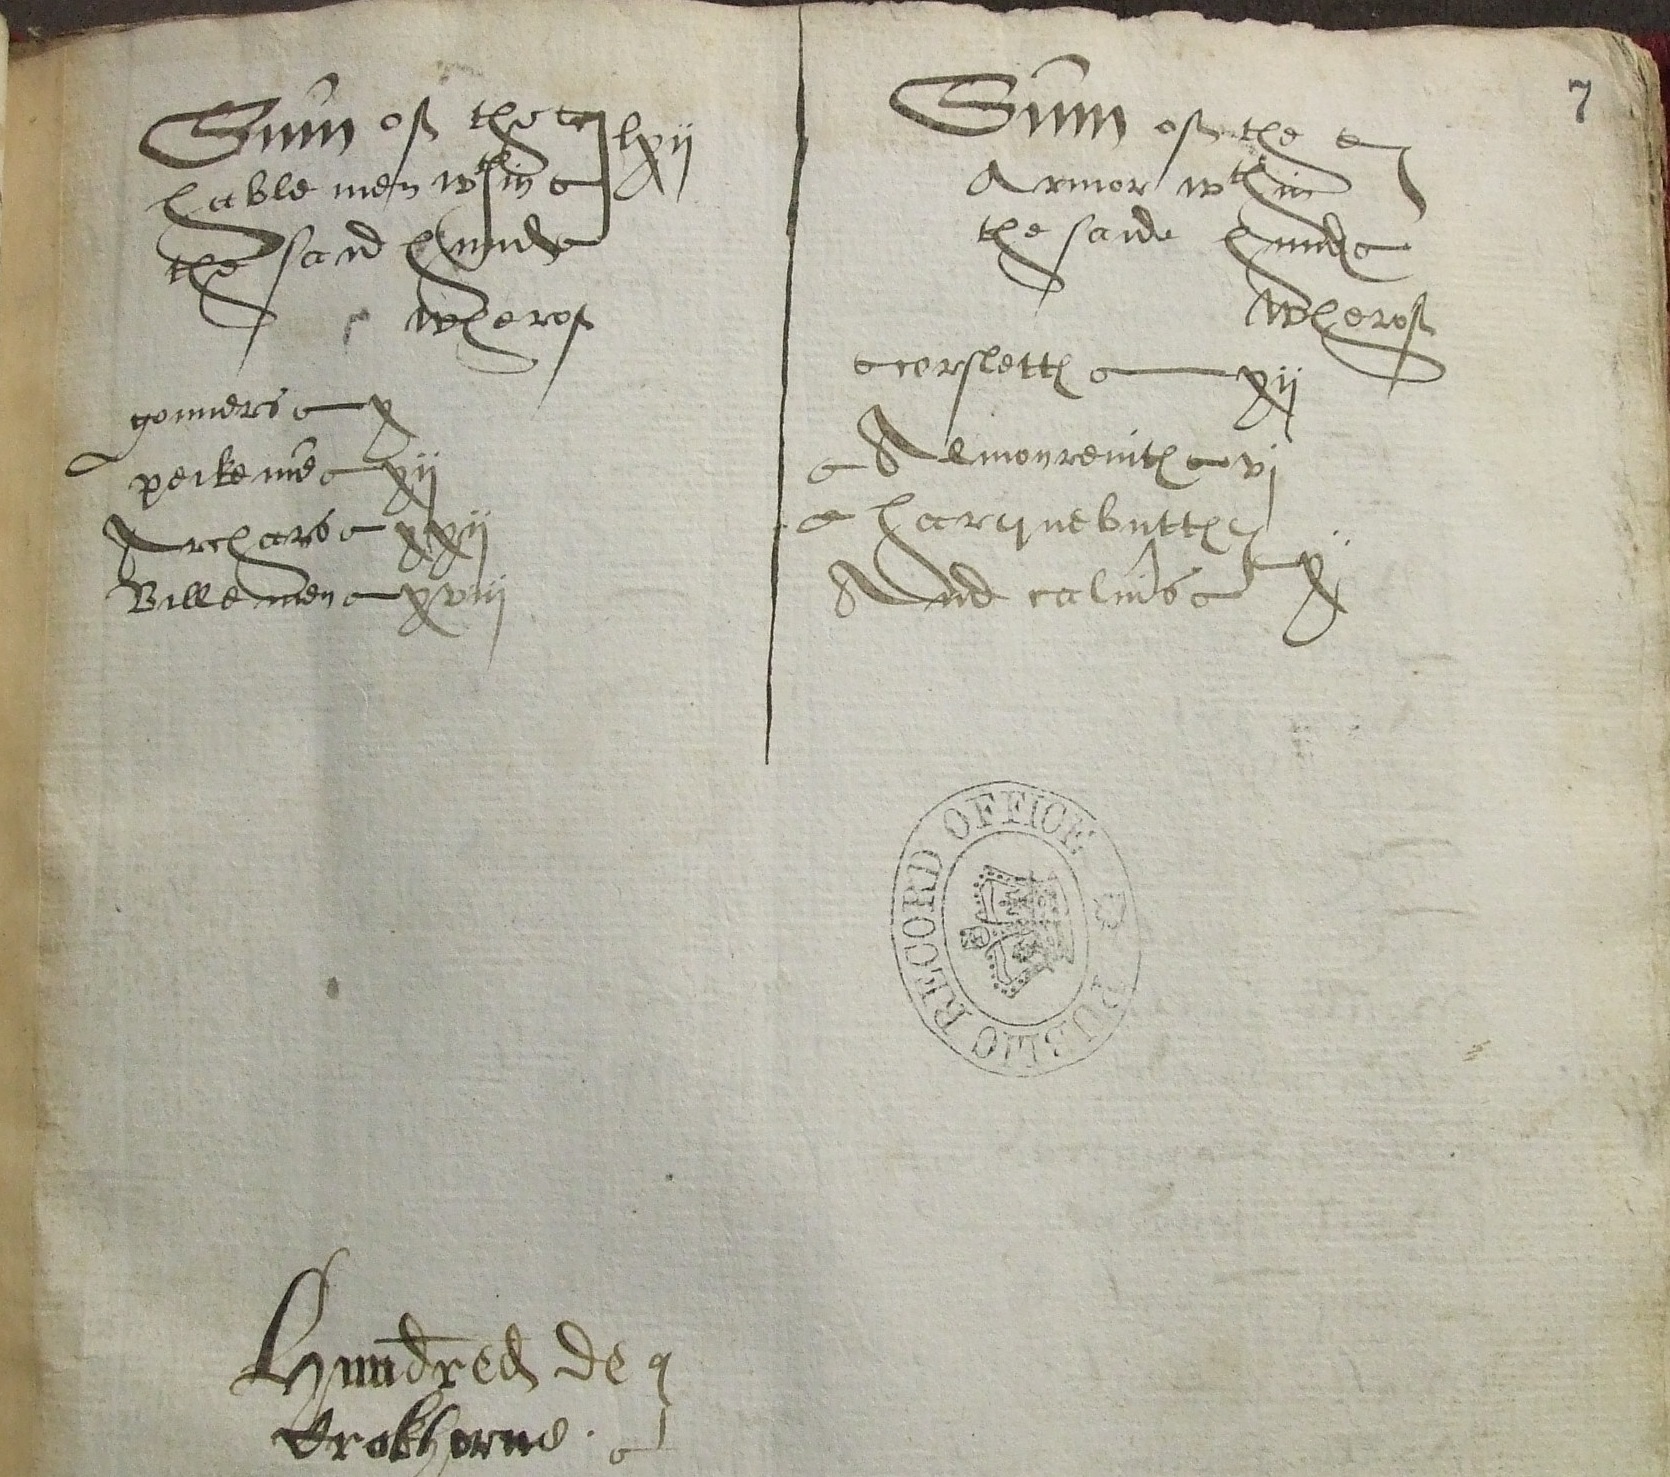 Sum̄ of the
hable men wth in
the said hund
wherof
lxij
gonners x
peikemē xij
Archars xxij
Billemen xviij
7
Sum̄ of the
Armor wth in
the saide hund
Wherof
corslett xij
Almonrevitt vj
harquebutt
And calivrs xij
PUBLIC RECORD OFFICE
Hundred de
Crokhorne